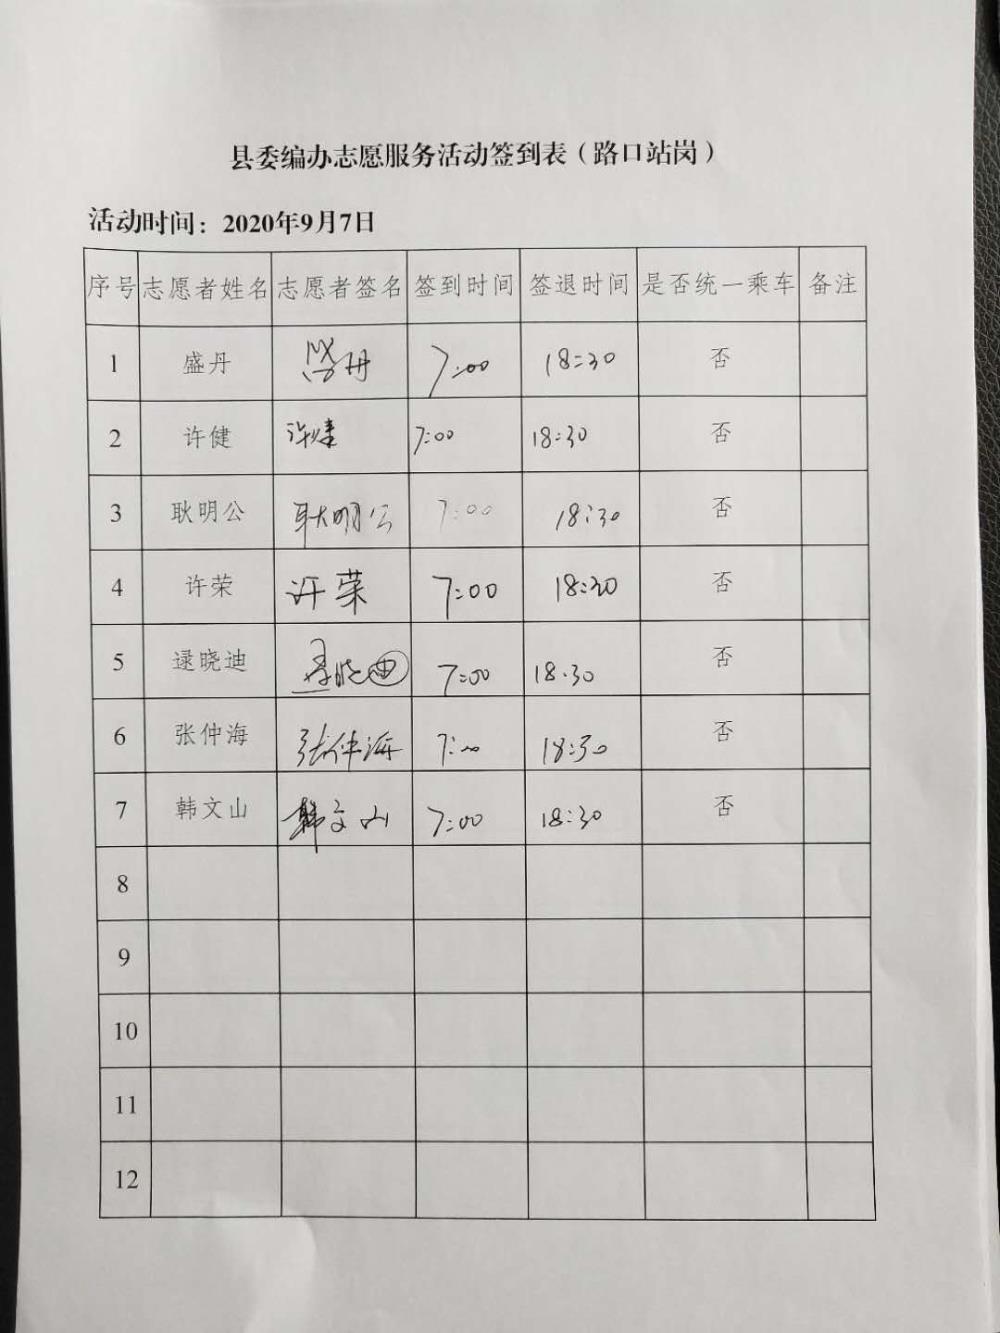 县委编办志愿服务活动签到表（路口站岗）
活动时间：2020年9月7日
序号 志愿者姓名 志愿者签名 签到时间 签退时间 是否统一乘车 备注
1 盛丹 盛丹 7:00 18:30 否
2 许健 许健 7:00 18:30 否
3 耿明公 耿明公 7:00 18:30 否
4 许荣 许荣 7:00 18:30 否
5 逯晓迪 逯晓迪 7:00 18:30 否
6 张仲海 张仲海 7:00 18:30 否
7 韩文山 韩文山 7:00 18:30 否
8
9
10
11
12